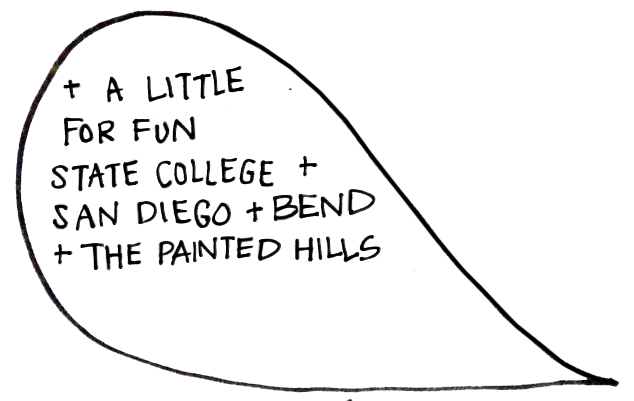 + A LITTLE
FOR FUN
STATE COLLEGE +
SAN DIEGO + BEND
+ THE PAINTED HILLS